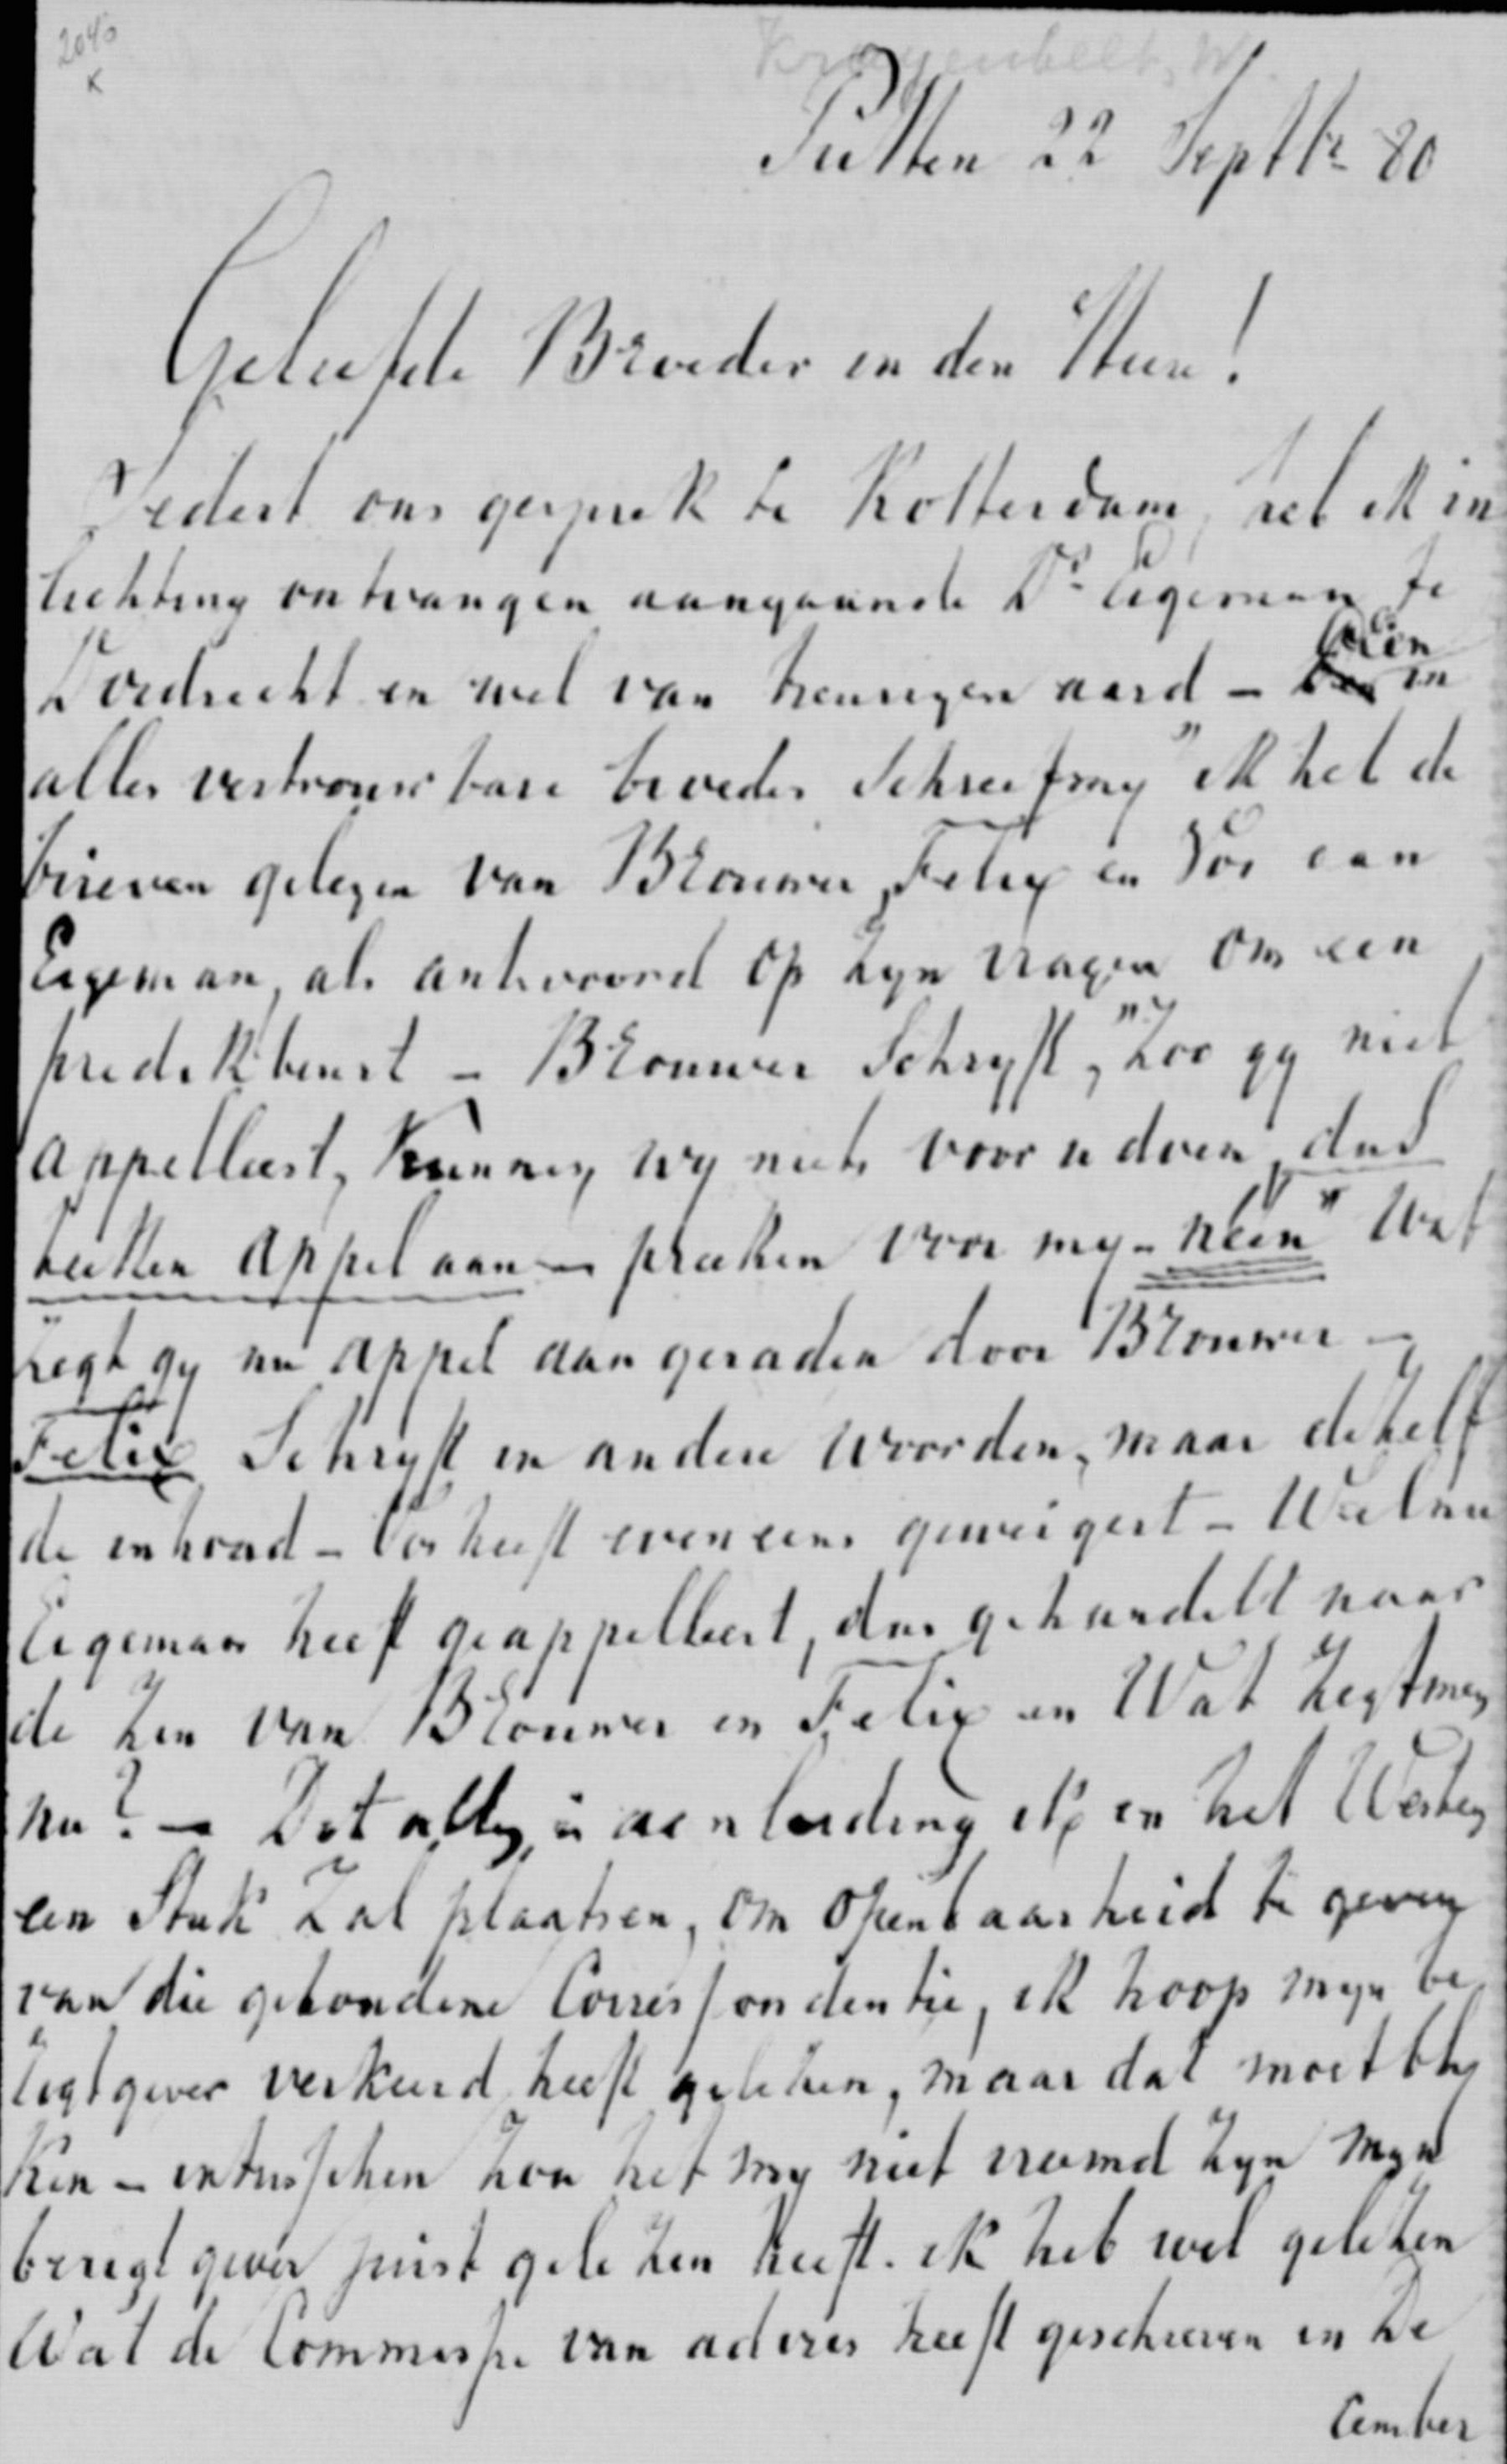 2040
x
Kragenbelt, W.
Putten 22 Septbr 80
Geliefde Broeder in den Heere!
Sedert ons gesprek te Rotterdam, heb ik in
lichting ontvangen aangaande Ds Eigeman te
Dordrecht en wel van treurigen aard - Eén
in
alles vertrouwbare broeder Schreef my "ik heb de
brieven gelezen van Brouwer, Felix en Vos aan
Eigeman, als antwoord op zyn vragen om een
predikbeurt - Brouwer Schryft, "Zoo gy niet
appelleert, kunnen wy niets voor u doen, dus
zetten appel aan - preeken voor my - neen" Wat
zegt gy nu appel aangeraden door Brouwer -
Felix Schryft in andere woorden, maar dezelf
de inhoud - Vos heeft eveneens geweigert - Welnu
Eigeman heeft geappelleert, dus gehandelt naar
de zin van Brouwer en Felix en Wat zegt men
nu? - Dit alles is aanleiding ik in het Westen
een Stuk zal plaatsen, om openbaarheid te geven
van die gehoudene Correspondentie, ik hoop myn be
rigtgever verkeerd heeft gelezen, maar dat moet bly
ken - intusschen zou het my niet vreemd zyn myn
berigtgever juist gelezen heeft. ik heb wel gelezen
Wat de Commissie van adres heeft geschreven in De
cember